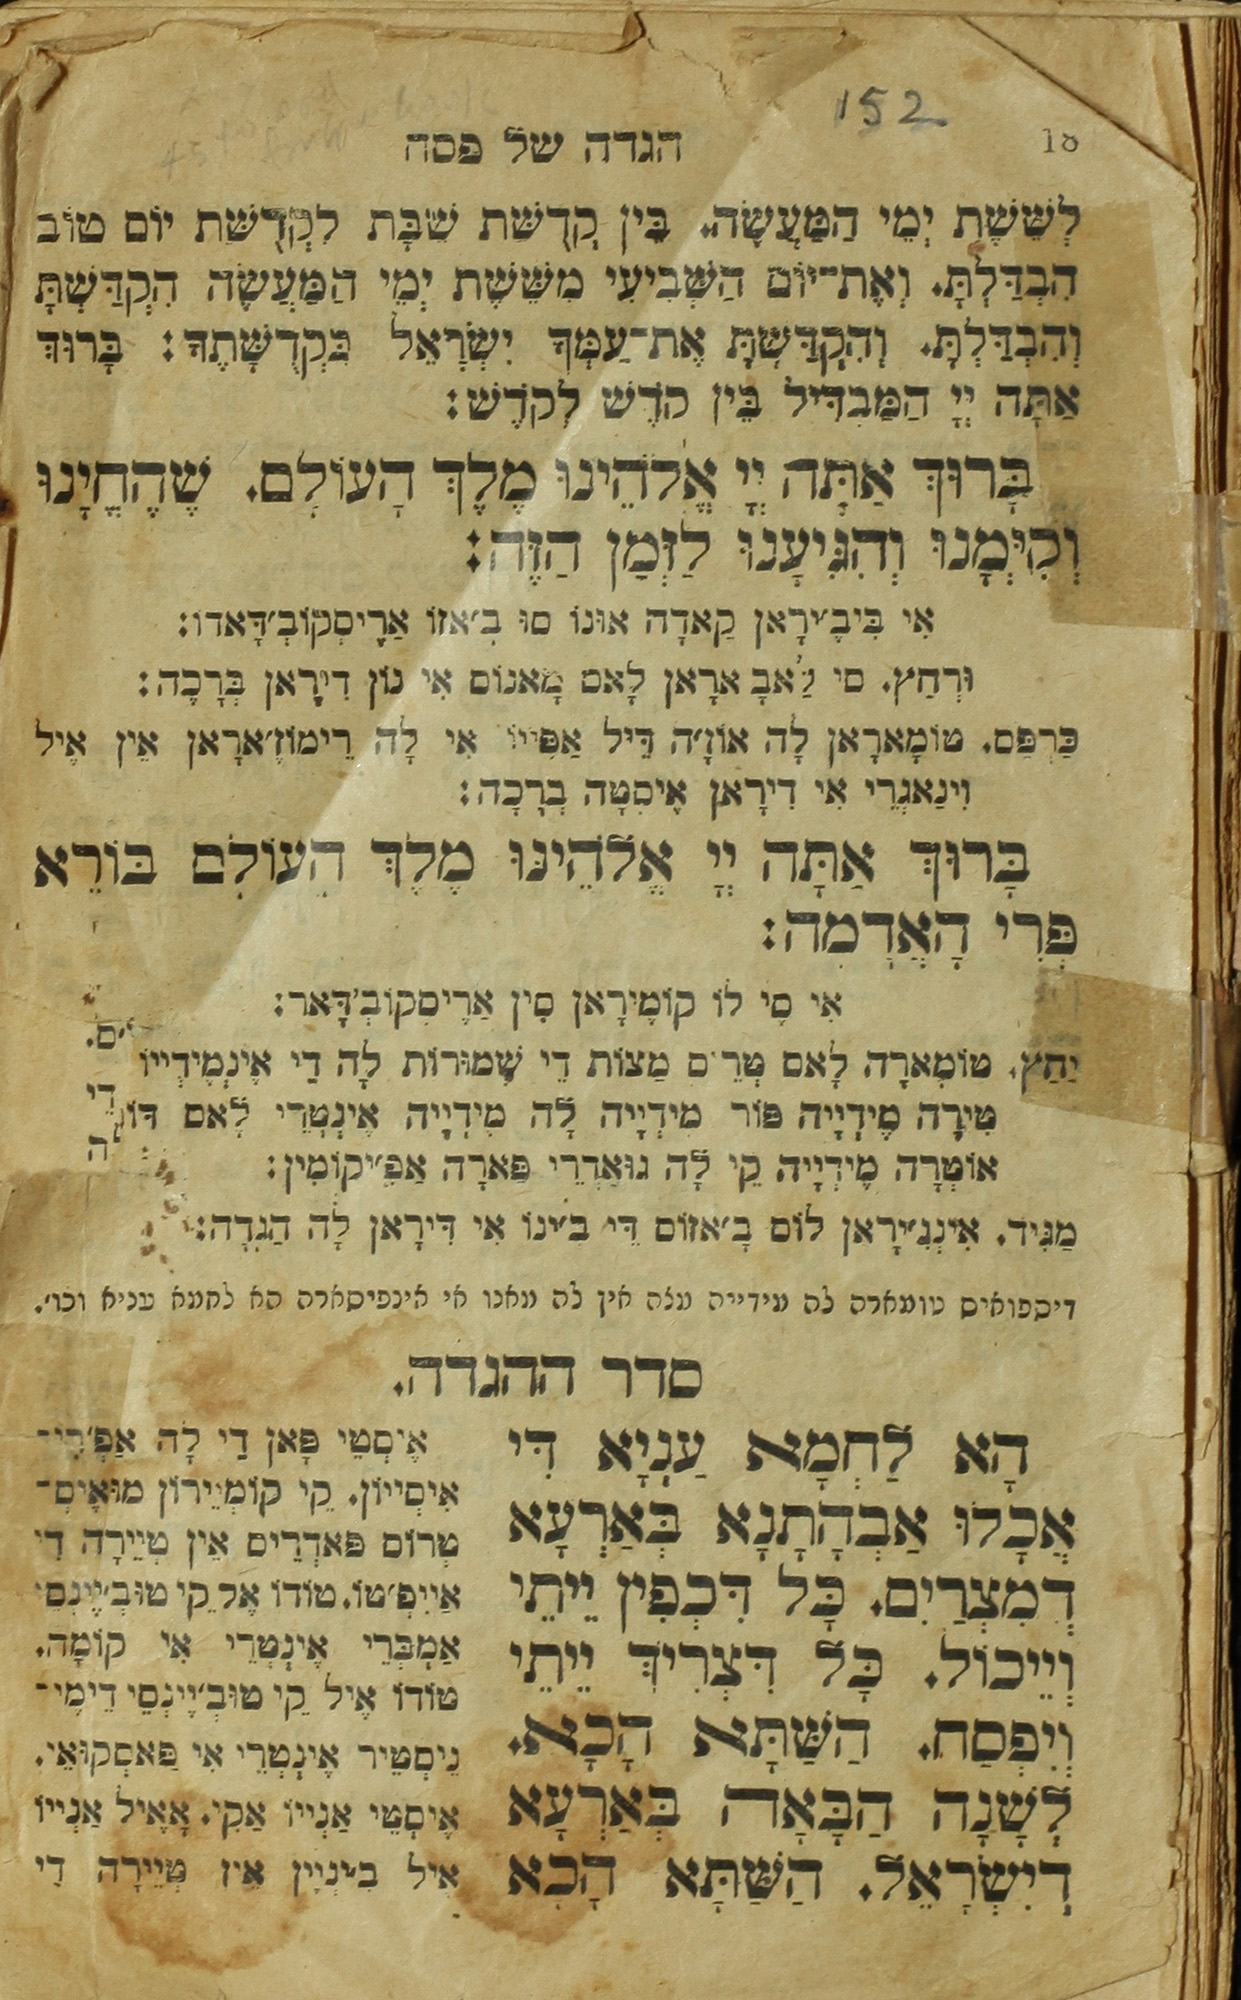 152
18
הגדה של פסח
לְשֵׁשֶׁת יְמֵי הַמַּעֲשֶׂה. בֵּין קְדֻשַּׁת שַׁבָּת לִקְדֻשַּׁת יוֹם טוֹב
הִבְדַּלְתָּ. וְאֶת־יוֹם הַשְּׁבִיעִי מִשֵּׁשֶׁת יְמֵי הַמַּעֲשֶׂה הִקְדַּשְׁתָּ
וְהִבְדַּלְתָּ. וְהִקְדַּשְׁתָּ אֶת־עַמְּךָ יִשְׂרָאֵל בִּקְדֻשָּׁתֶךָ: בָּרוּךְ
אַתָּה יְיָ הַמַּבְדִּיל בֵּין קֹדֶשׁ לְקֹדֶשׁ:
בָּרוּךְ אַתָּה יְיָ אֱלֹהֵינוּ מֶלֶךְ הָעוֹלָם. שֶׁהֶחֱיָנוּ
וְקִיְּמָנוּ וְהִגִּיעָנוּ לַזְּמָן הַזֶּה:
אִי בִּיבֶ׳ירָאן קַאדָה אוּנוֹ סוּ בַ׳אזוֹ אַרֶיסְקוֹבְ׳דָּאדוֹ:
וּרְחַץ. סִי לַ׳אבָארָאן לָאס מָאנוֹס אִי נוֹן דִירָאן בְּרָכָה:
כַּרְפַּס. טוֹמָארָאן לָה אוֹזָ׳ה דֵּיל אַפִּייוֹ אִי לָה רֵימוֹזָ׳ארָאן אֵין אֶיל
וִינַאגְרֵי אִי דִירָאן אֶיסְטָה בְרָכָה:
בָּרוּךְ אַתָּה יְיָ אֱלֹהֵינוּ מֶלֶךְ הָעוֹלָם בּוֹרֵא
פְּרִי הָאֲדָמָה:
אִי סֶי לוֹ קוֹמֶירָאן סִין אַרֶיסְקוֹבְ׳דָּאר:
יַחַץ. טוֹמָארָה לָאס טְרֵיס מַצוֹת דֵי שְׁמוּרוֹת לָה דֵי אֶינְמֶידְייוֹ
טִירָה מֶידְיָיה פּוֹר מִידְיָיה לָה מֶידְיָיה אֶינְטְרֵי לָאס דּוֹ דֵי
אוֹטְרָה מֶידְיָיה קֵי לָה גוּאַדְרֵי פַּארָה אַפִ׳יקוֹמִין:
מַגִּיד. אִינְגִ׳ירָאן לוֹס בָ׳אזוֹס דֵּי בִ׳ינוֹ אִי דִּירָאן לָה הַגָּדָה:
דיספואיס טומארה לה מידייה מצה אין לה מאנו אי אינפיסארה הא לחמא עניא וכו׳.
סדר ההגדה.
הָא לַחְמָא עַנְיָא דִּי
אֲכָלוּ אַבְהָתָנָא בְּאַרְעָא
דְמִצְרַיִם. כָּל דִּכְפִין יֵיתֵי
וְיֵיכוֹל. כָּל דִּצְרִיךְ יֵיתֵי
וְיִפְסַח. הַשַּׁתָּא הָכָא.
לְשָׁנָה הַבָּאָה בְּאַרְעָא
דְיִשְׂרָאֵל. הַשַּׁתָּא הָכָא
אֶיסְטֵי פָּאן דֵי לָה אַפְ׳רִי־
אִיסְייוֹן. קֵי קוֹמְיֵירוֹן מוּאֶיסְ־
טְרוֹס פַּאדְרֵיס אֵין טְיֵירָה דֵי
אַייִפְ׳טוֹ. טוֹדוֹ אֶל קֵי טוּבְ׳יֶינְסֵי
אַמְבְּרֵי אֶינְטְרֵי אִי קוֹמָה.
טוֹדוֹ אֶיל קֵי טוּבְ׳יֶינְסֵי דֵימֶי־
נֵיסְטֵיר אֶינְטְרֵי אִי פַּאסְקוּאֵי.
אֶיסְטֵי אַנְייוֹ אַקִי. אָאֶיל אַנְייוֹ
אֵיל בִ׳ינְיֶין אֵין טְיֵירָה דֵי